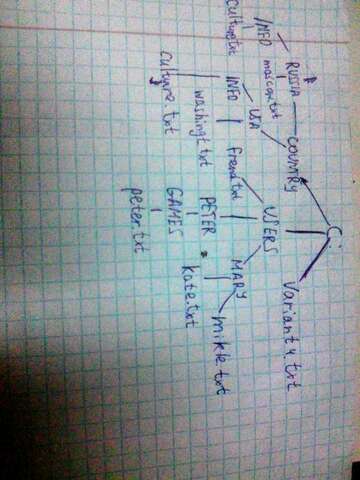 C:
RUSSIA COUNTRY variant4.txt
INFO moscow.txt USA USERS
culture.txt INFO frend.txt MARY
washingt.txt PETER kate.txt mikle.txt
culture.txt GAMES
peter.txt